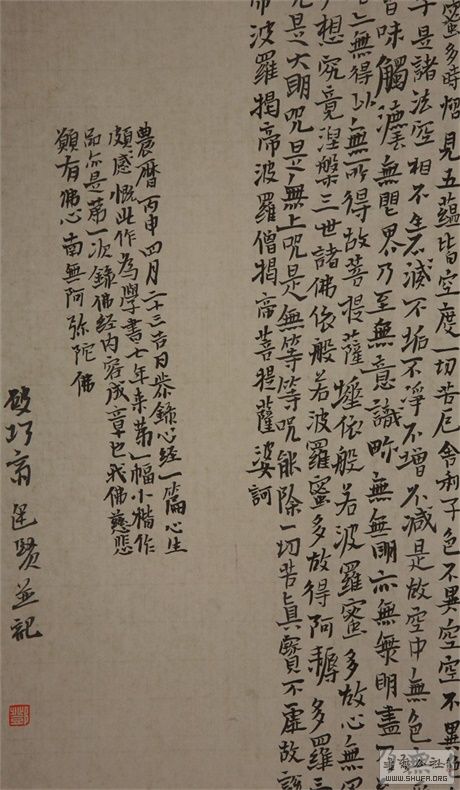 蜜多時炤見五蘊皆空度一切苦厄舍利子色不異空空不異色
子是諸法空相不生不滅不垢不淨不增不減是故空中無色
香味觸法無眼界乃至無意識界無無明亦無無明盡乃
無得以無所得故菩提薩埵依般若波羅蜜多故心無罣
夢想究竟涅槃三世諸佛依般若波羅蜜多故得阿耨多羅三
咒是大明咒是無上咒是無等等咒能除一切苦真實不虛故說
帝波羅揭帝波羅僧揭帝菩提薩婆訶
農曆丙申四月二十三吉日恭錄心经一篇心生
頗感慨此作為學書七年来第一幅小楷作
品亦是第一次錄佛经内容成章也我佛慈悲
願有佛心南無阿弥陀佛
破巧斋賢並記
WWW.SHUFA.ORG